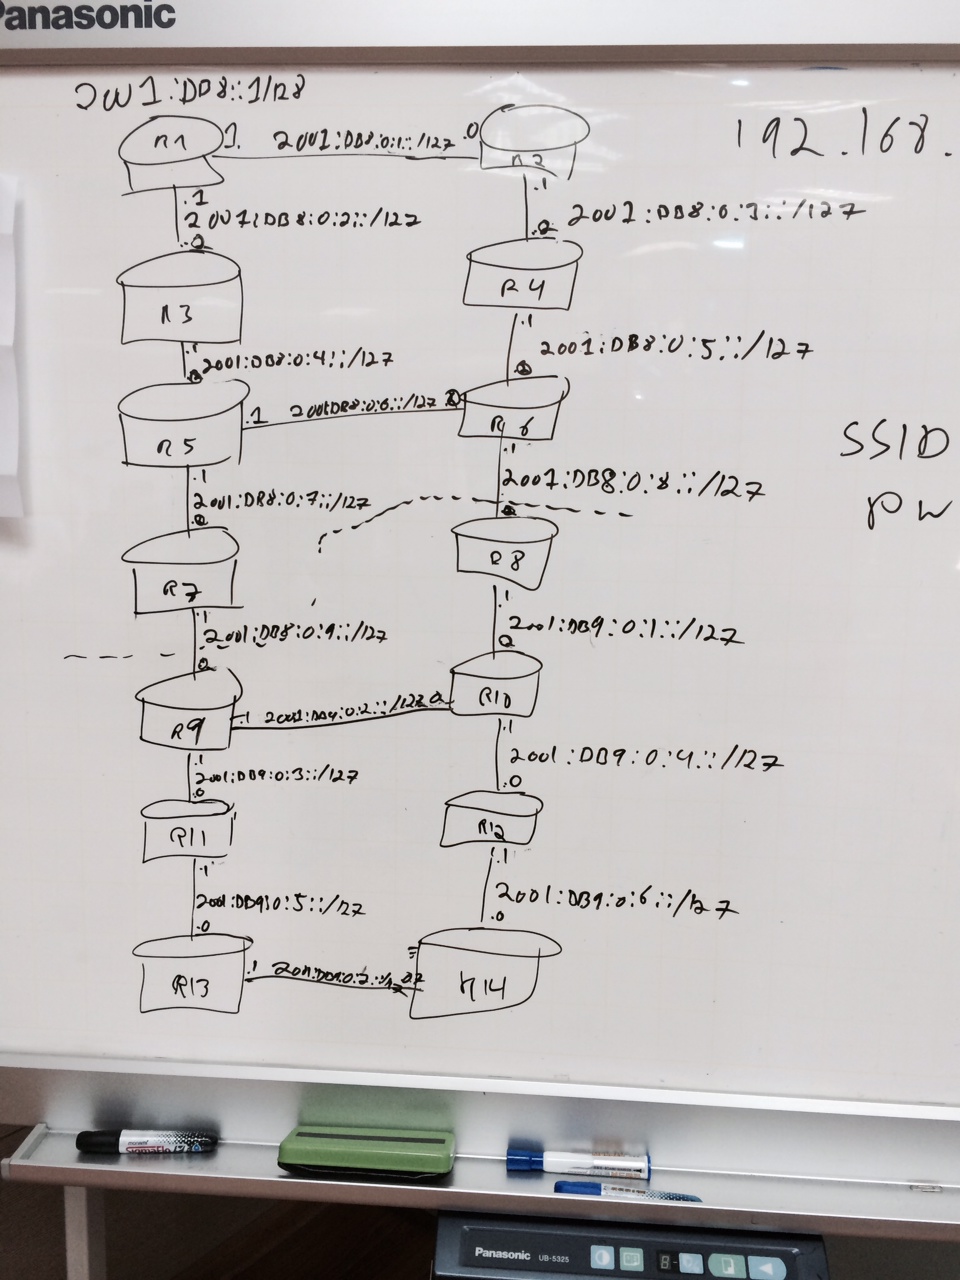 Panasonic
2001:DB8::1/128
R1
.1
2001:DB8:0:1::/127
.0
R2
192.168.
.1
2001:DB8:0:2::/127
.0
.1
2001:DB8:0:3::/127
.0
R3
R4
.1
2001:DB8:0:4::/127
.0
.1
2001:DB8:0:5::/127
.0
R5
.1
2001:DB8:0:6::/127
R6
SSID
PW
.1
2001:DB8:0:7::/127
.0
.1
2001:DB8:0:8::/127
.0
R7
R8
.1
2001:DB8:0:9::/127
.0
.1
2001:DB9:0:1::/127
.0
R9
.1
2001:DB9:0:2::/127
.0
R10
.1
2001:DB9:0:3::/127
.0
.1
2001:DB9:0:4::/127
.0
R11
R12
.1
2001:DB9:0:5::/127
.0
.1
2001:DB9:0:6::/127
.0
R13
.1
R14
Panasonic
UB-5325